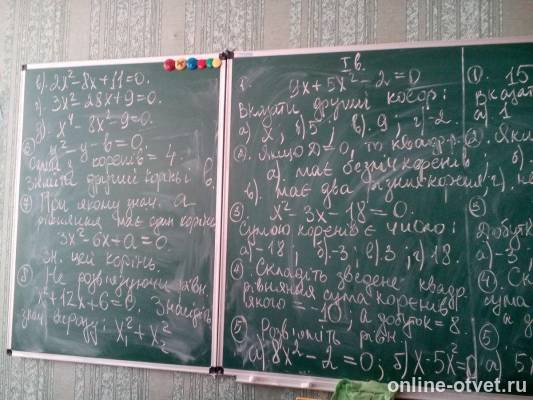 в) 2x² - 8x + 11 = 0.
г) 3x² - 28x + 9 = 0.
д) x⁴ - 8x² - 9 = 0.
y² - y - 6 = 0
коренів = 4.
Знайти другий корінь і в.
⑦ При якому знач. a
рівняння має один корінь
3x² - 6x + a = 0.
Зн. цей корінь.
⑧ Не розв'язуючи рівн.
x² + 12x + 6 = 0. Знайдіть
знач. виразу: x₁² + x₂²
I в.
9x + 5x² - 2 = 0
Вказати другий коеф.:
а) 2; б) 5; в) 9; г) -2.
② Якщо D = 0, то квадр.
а) має безліч коренів; б)
в) має два різних корені; г)
③ x² - 3x - 18 = 0.
Сумою коренів є число:
а) -18; б) -3; в) 3; г) 18.
④ Складіть зведене квадр.
рівняння сума коренів
якого = -10, а добуток = 8.
⑤ Розв'яжіть рівн.
а) 8x² - 2 = 0; б) x - 5x² = 0
①. 15
Вказат
а) 1
Якщ
Добут
а) -5
④. Ск
сума
а д
⑤
а) 5x
online-otvet.ru